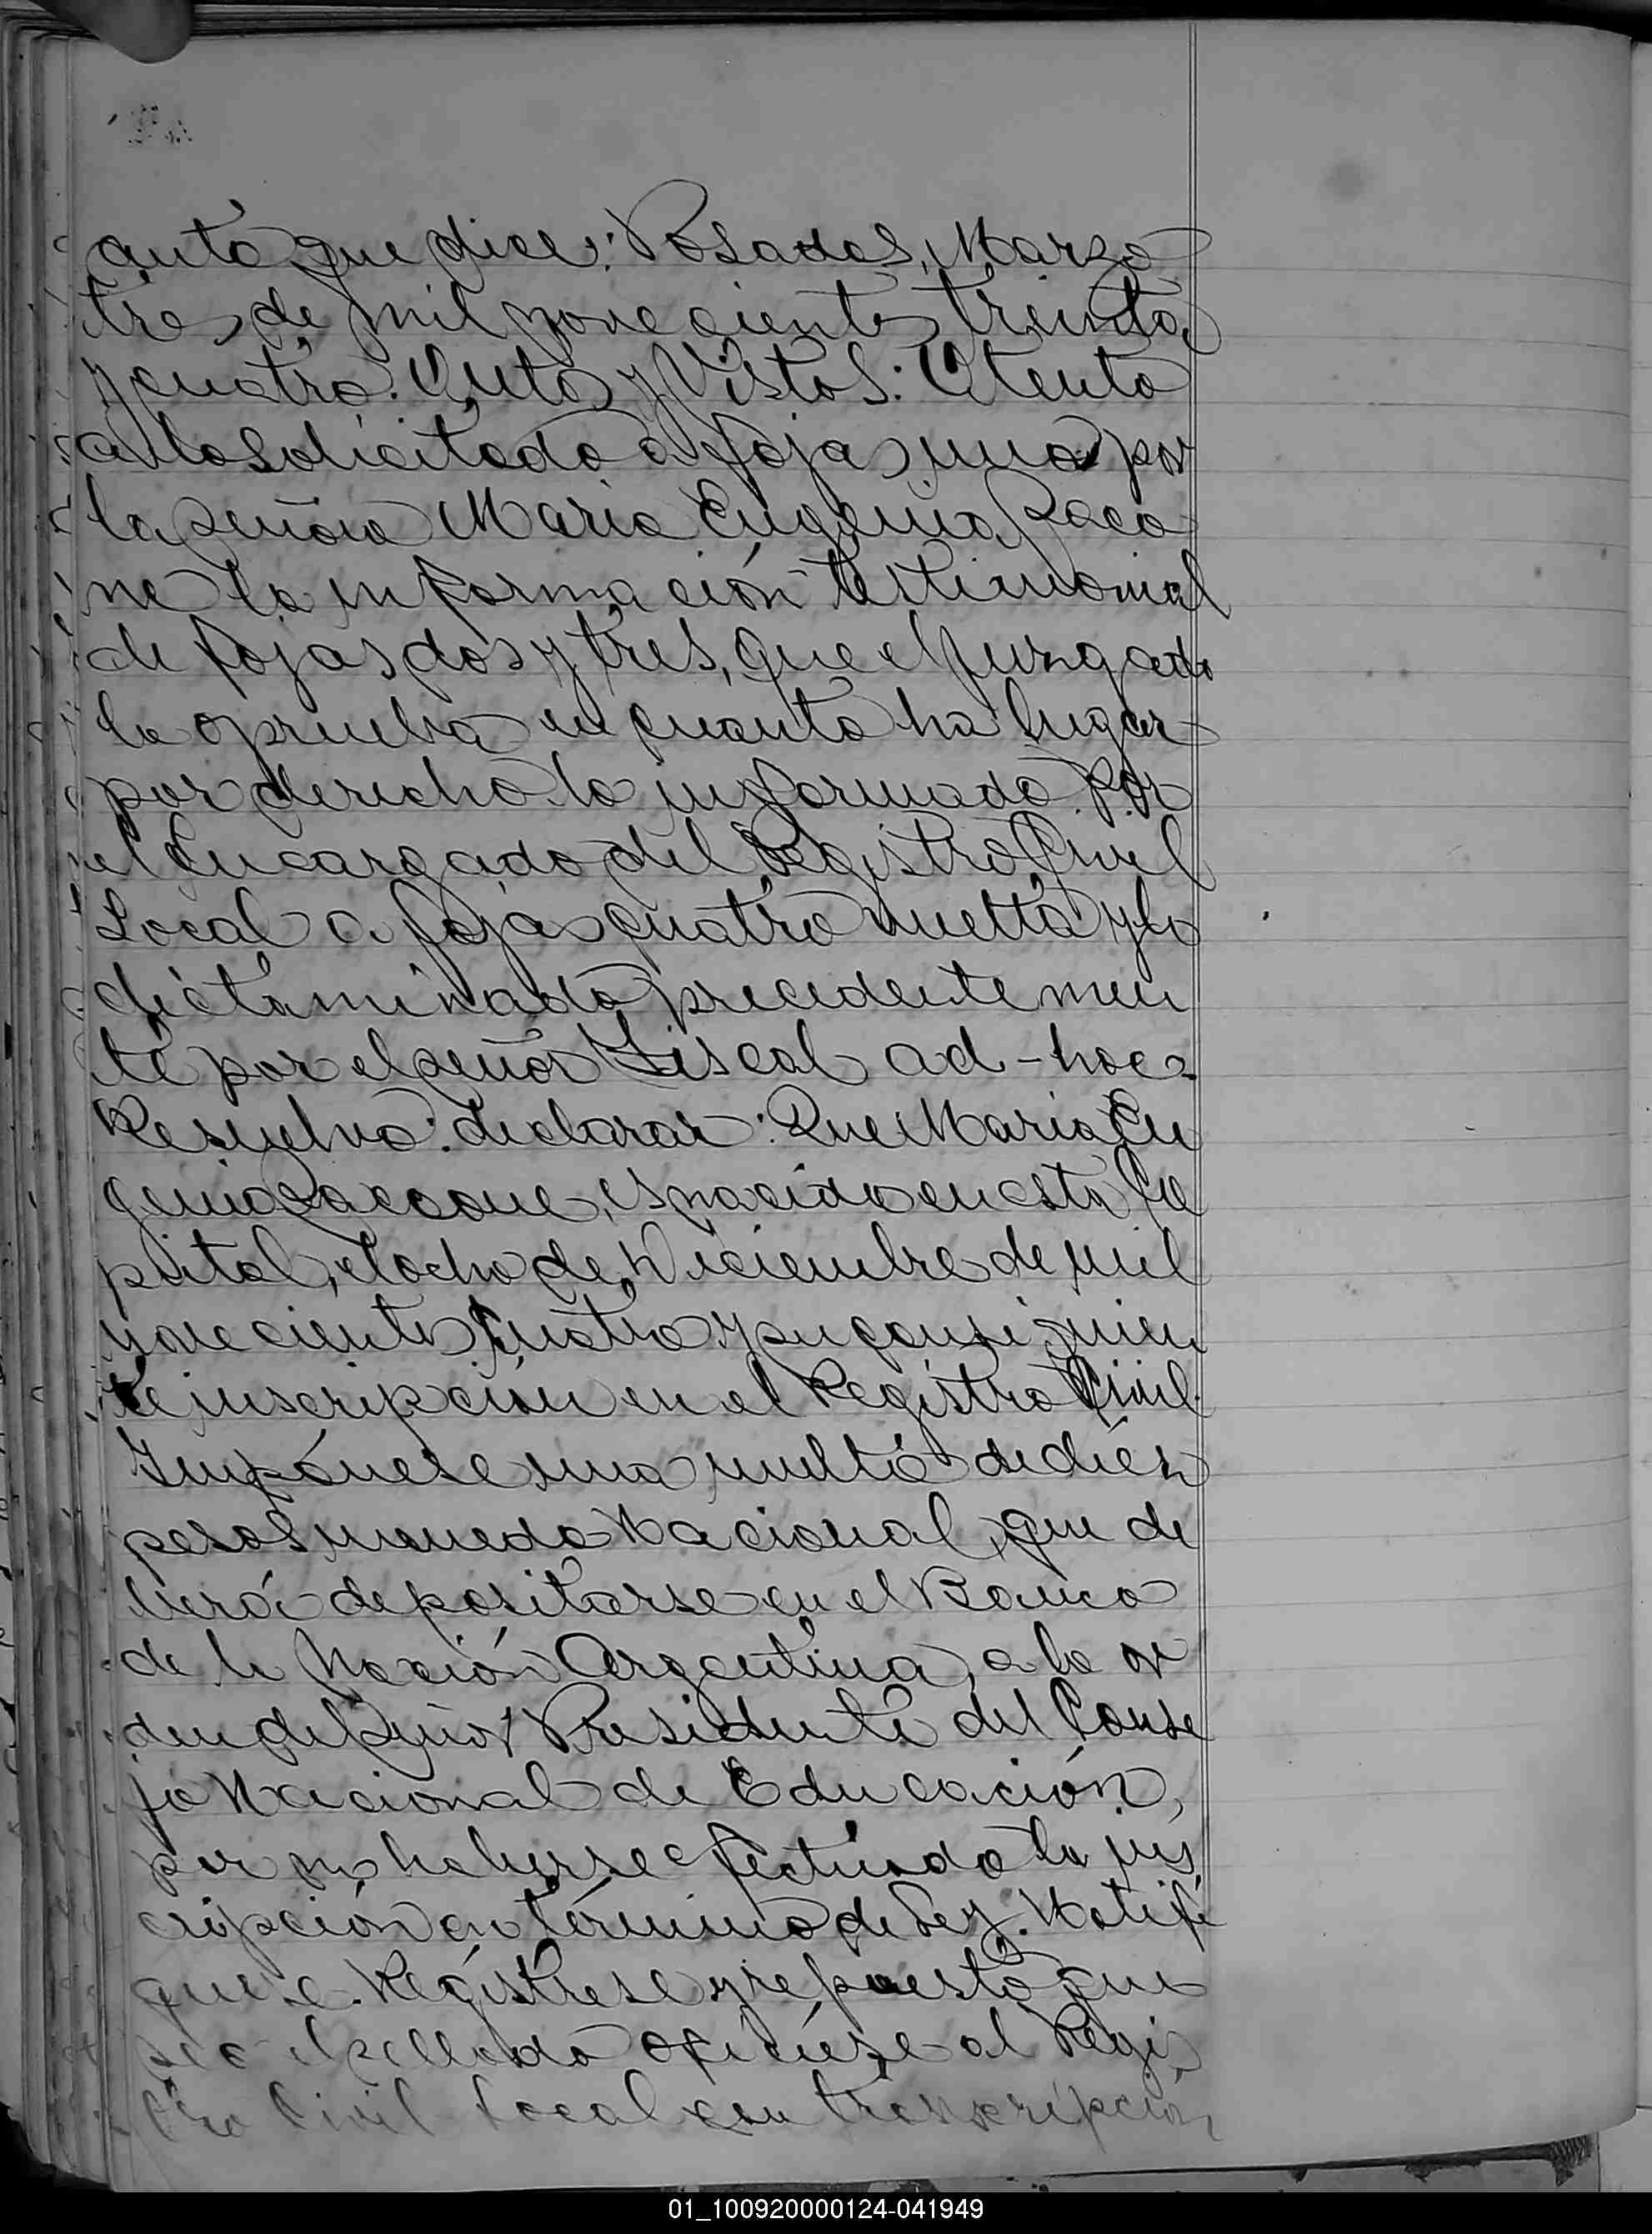 auto que dice: Posadas, Marzo
tres de mil novecientos treinta
y cuatro. Autos y Vistos: Atento
a lo solicitado a fojas una por
la señora Maria Eugenia Raco
ne la información testimonial
de fojas dos y tres, que el Juzgado
la aprueba en cuanto ha lugar
por derecho lo informado por
el Encargado del Registro Civil
Local a fojas cuatro vuelta y lo
dictaminado precedentemen
te por el señor Fiscal ad-hoc
Resuelvo: declarar: Que Maria Eu
genia Racone, es nacida en esta Ca
pital, el ocho de Diciembre de mil
novecientos cuatro y su consiguien
te inscripción en el Registro Civil.
Impónese una multa de diez
pesos moneda Nacional, que de
berá depositarse en el Banco
de la Nación Argentina, a la or
den del Señor Presidente del Conse
jo Nacional de Educación,
por no haberse efectuado la ins
cripción en término de Ley. Notifí
quese. Regístrese y repuesto que
sea el sellado ofíciese al Regis
tro Civil Local con transcripción
01_100920000124-041949